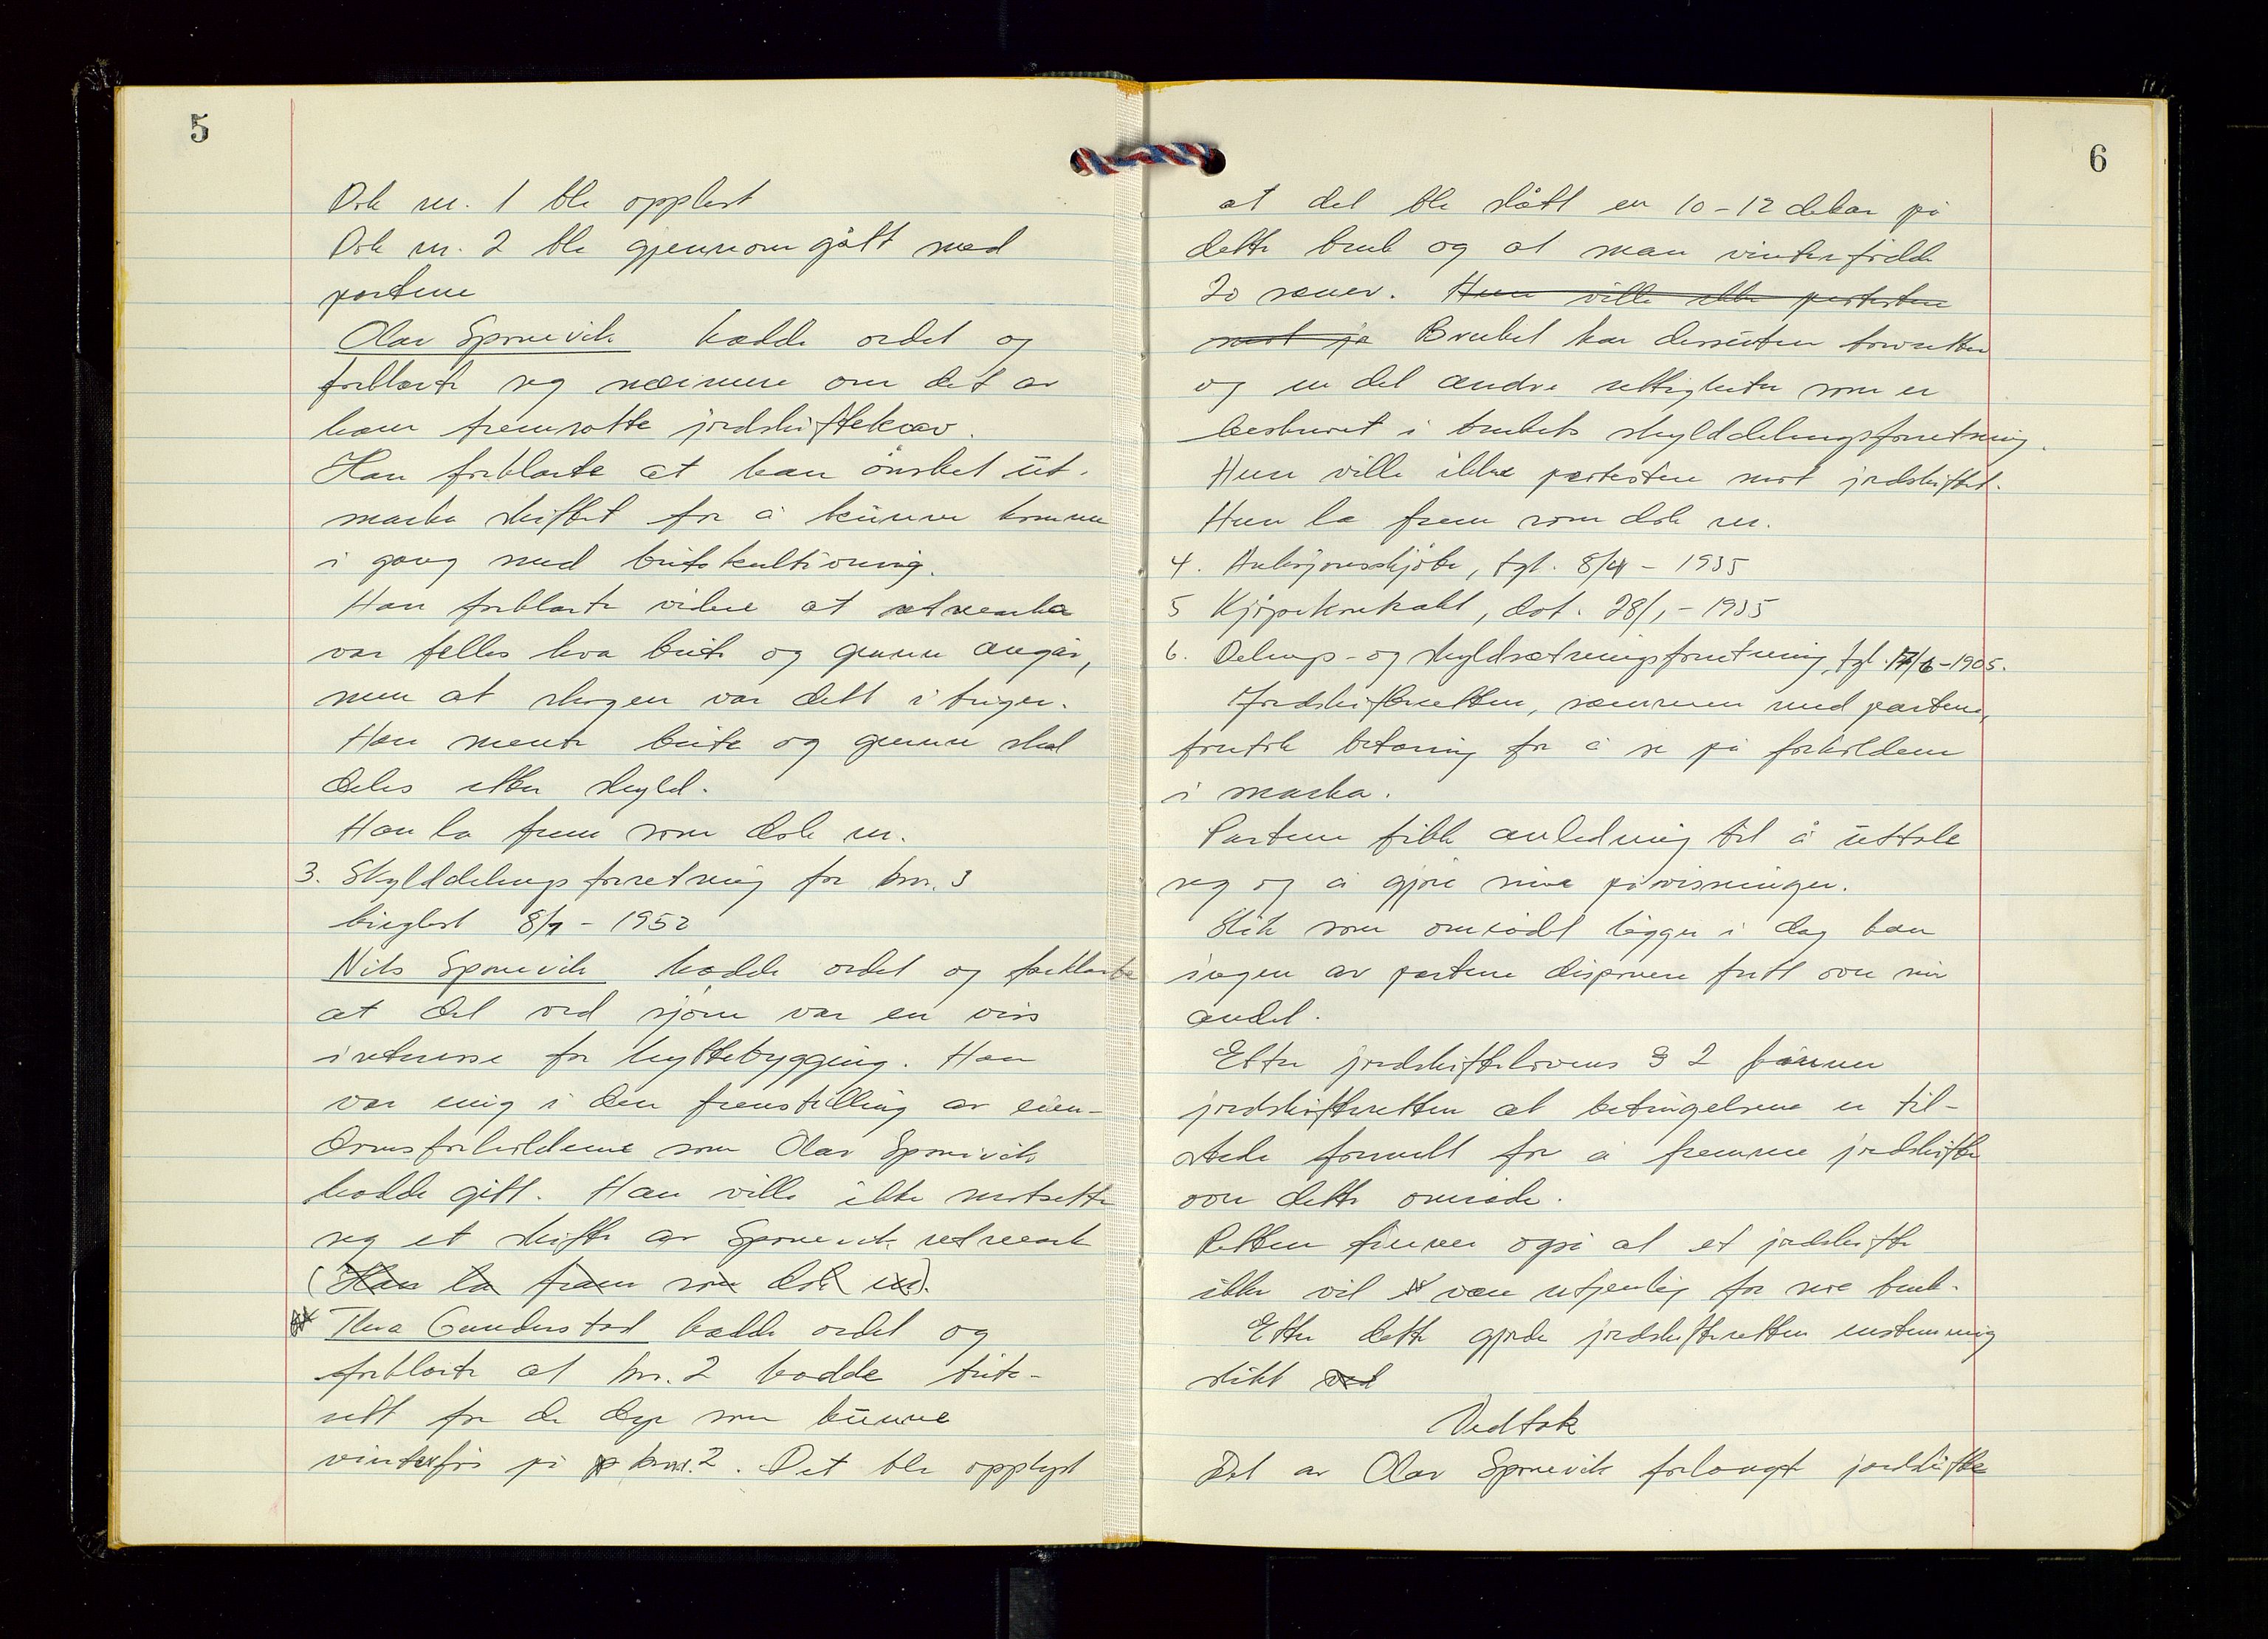 5
Dok nr. 1 ble opplest
Dok nr. 2 ble gjennomgått med
partene
Olav Sponevik hadde ordet og
forklarte seg nærmere om det av
ham fremsatte jordskiftekrav.
Han forklarte at han ønsket ut-
marka skiftet for å kunne komme
i gang med beitekultivering.
Han forklarte videre at utmarka
var felles hva beite og grunn angår,
men at skogen var delt i teiger.
Han mente beite og grunn skal
deles etter skyld.
Han la frem som dok nr.
3. Skylddelingsforretning for bnr. 3
tinglest 8/9 - 1952
Nils Sponevik hadde ordet og forklarte
at det ved sjøen var en viss
interesse for hyttebygging. Han
var enig i den fremstilling av eien-
domsforholdene som Olav Sponevik
hadde gitt. Han ville ikke motsette
seg et skifte av Sponevik utmark
(Han la fram som dok nr).
Thea Gunderstad hadde ordet og
forklarte at bnr. 2 hadde beite-
rett for de dyr som kunne
vinterfôs på bnr. 2. Det ble opplyst
6
at det ble slått en 10-12 dekar på
dette bruk og at man vinterfødde
20 sauer. Hun ville ikke protestere
mot jo Bruket har dessuten torvretter
og en del andre rettigheter som er
beskrevet i brukets skylddelingsforretning.
Hun ville ikke protestere mot jordskiftet.
Hun la frem som dok nr.
4. Auksjonsskjøte, tgl. 8/4 - 1935
5 Kjøpekontrakt, dat. 28/1 - 1935
6. Delings- og skyldsetningsforretning, tgl. 17/6-1905.
Jordskifteretten, sammen med partene,
foretok befaring for å se på forholdene
i marka.
Partene fikk anledning til å uttale
seg og å gjøre sine påvisninger.
Slik som området ligger i dag kan
ingen av partene disponere fritt over sin
andel.
Etter jordskiftelovens § 2 finner
jordskifteretten at betingelsene er til-
stede formelt for å fremme jordskifte
over dette område.
Retten finner også at et jordskifte
ikke vil være utjenlig for noe bruk.
Etter dette gjorde jordskifteretten enstemmig
slikt ved
Vedtak
Det av Olav Sponevik forlangte jordskifte